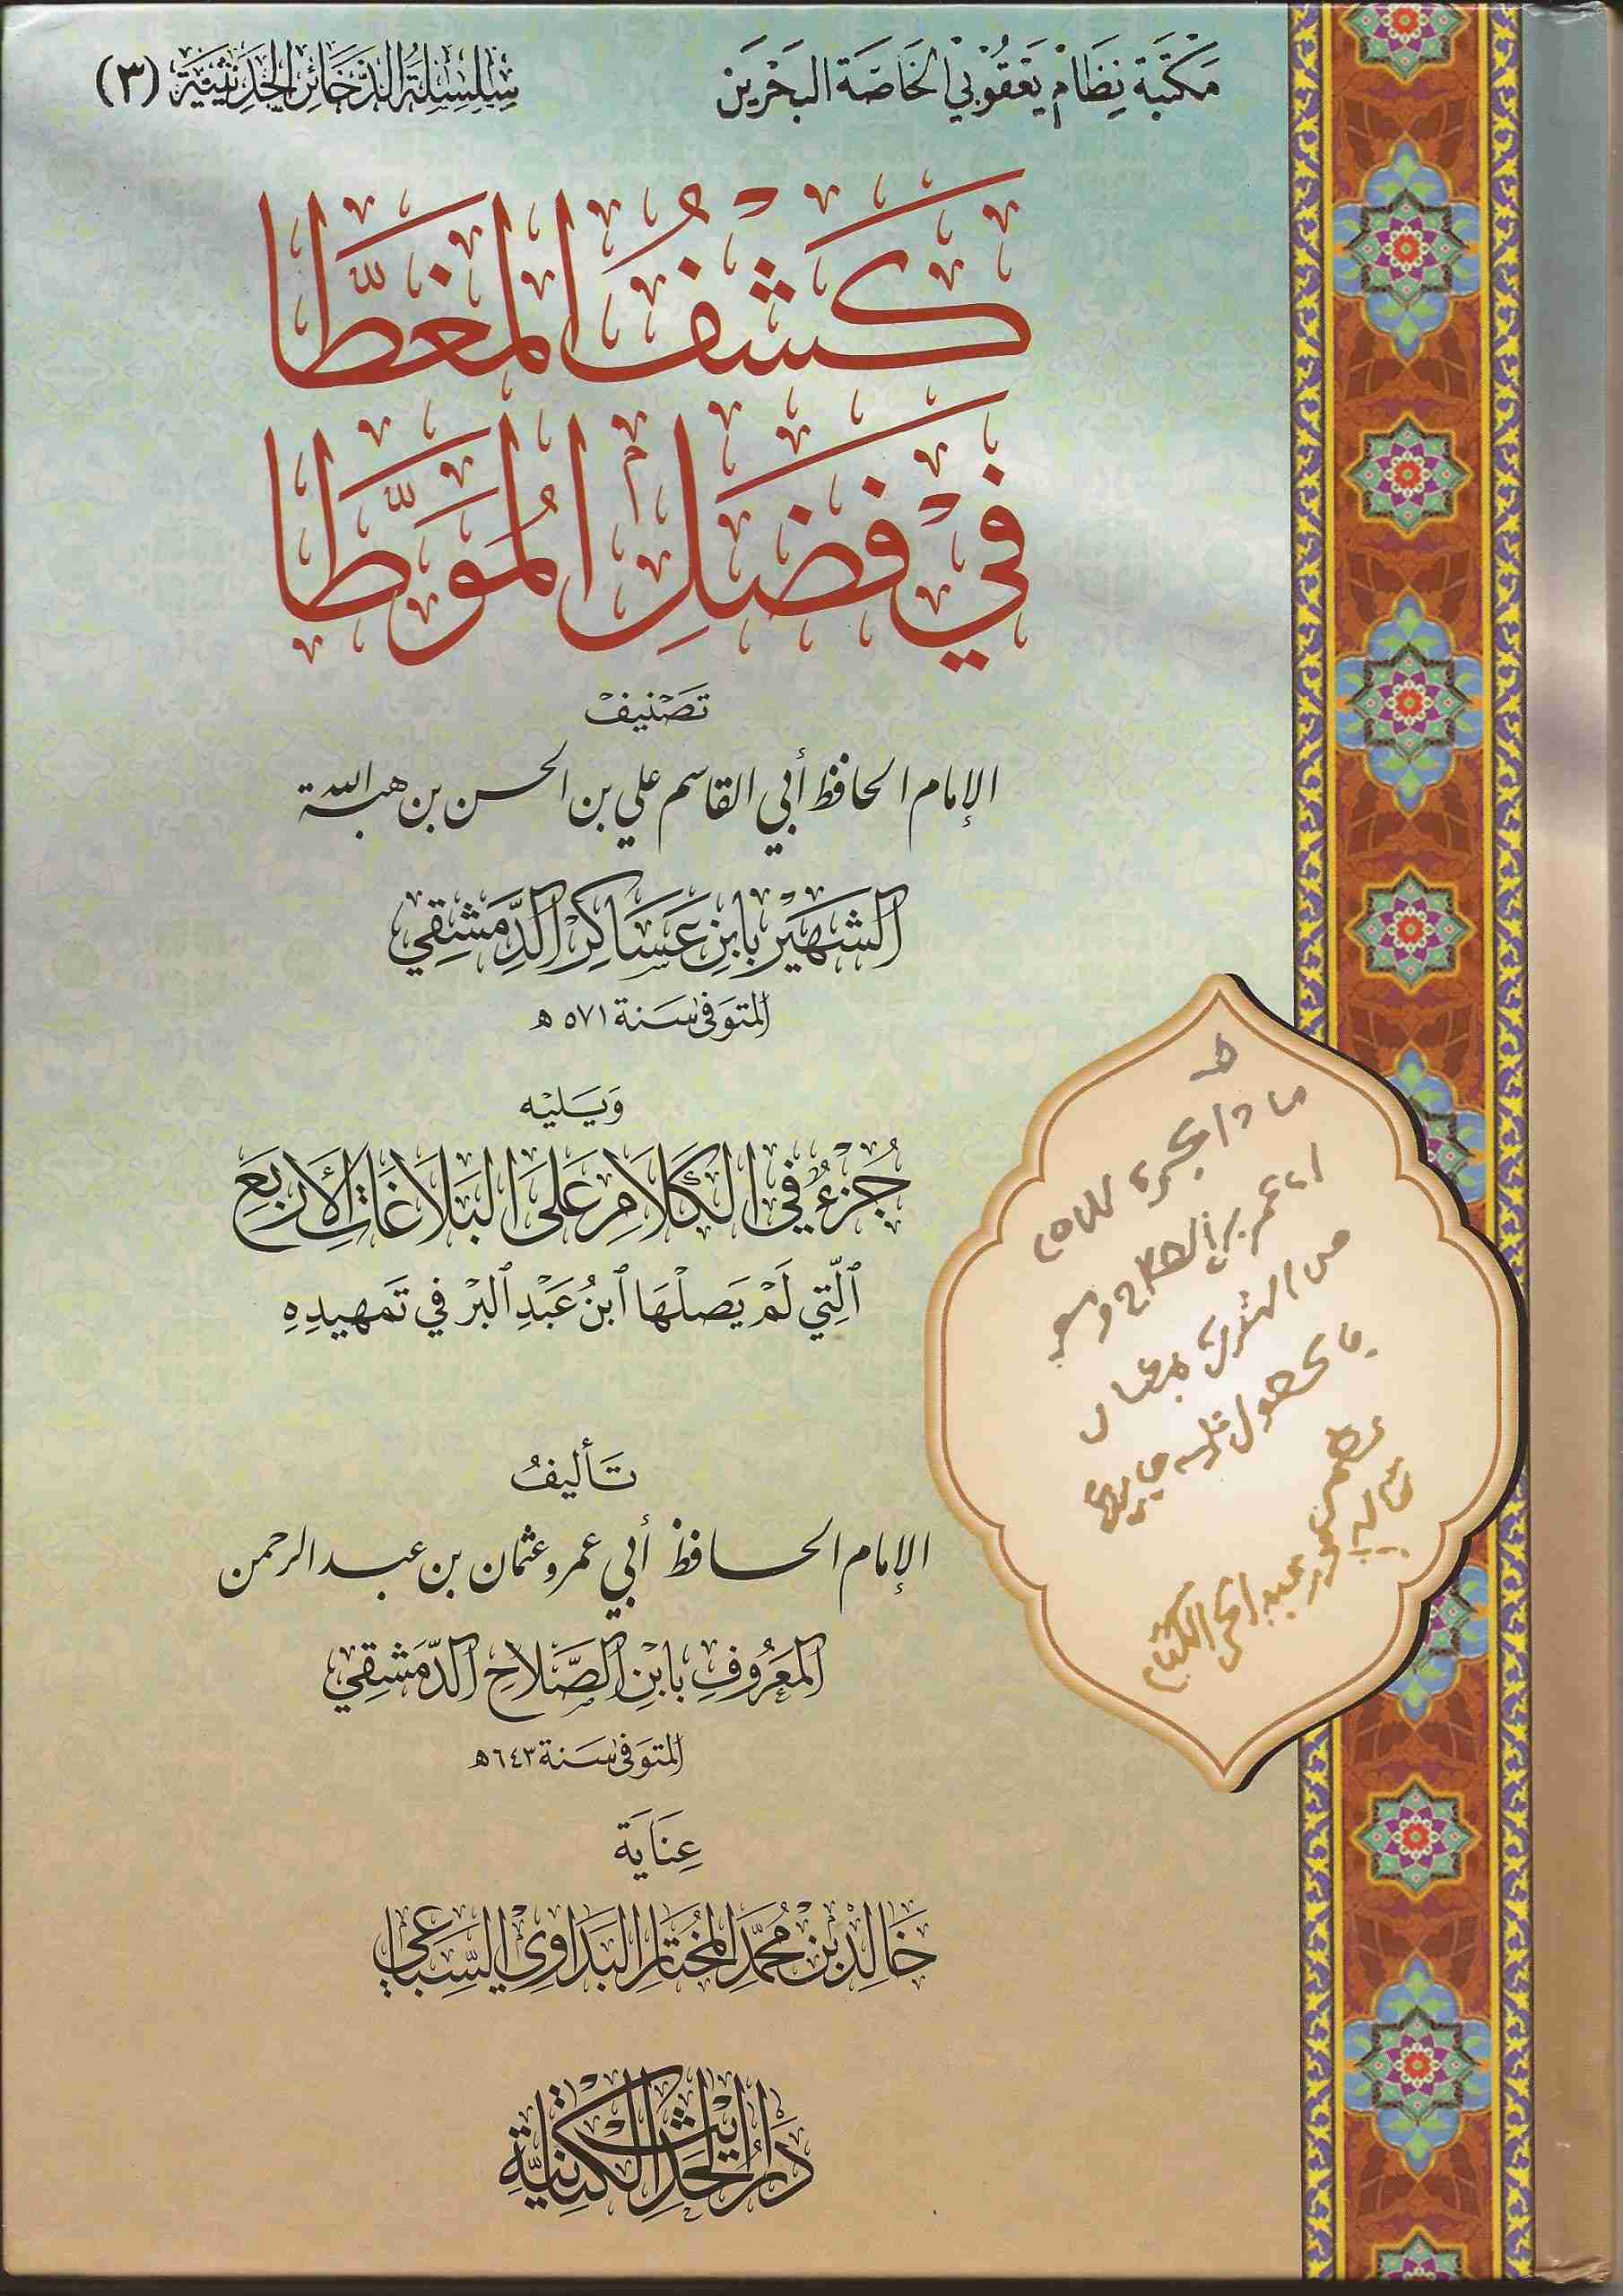 مَكْتَبَة نِظَامْ يَعْقُوْبِيْ الخَاصَّة البَحْرَيَن
سِلْسِلَةُ الذَّخَائِرِ الحَدِيْثِيَّة (٣)
كَشْفُ المُغَطَّا
فِيْ فَضْلِ المُوَطَّا
تَصْنِيفْ
الإمام الحافظ أبي القاسم علي بن الحسن بن هبة الله
الشَهِيْر بابنِ عَسَاكِرْ الدِّمَشِقِي
المتَوَفىٰ سَنة ٥٧١ ه
وَيَليْه
جُزْءٌ فِي الكَلَامِ عَلَى البَلَاغَاتِ الأَرْبَعِ
الَّتِي لَمْ يَصِلْهَا ابنُ عَبْدِ البَرْ في تَمهيدِهِ
تَأليفُ
الإمام الحافظ أبي عمرو عثمان بن عبد الرحمن
المَعْرُوفِ بابْنِ الصَّلَاحِ الدِّمَشْقِي
المتَوَفىٰ سَنة ٦٤٣ه
عِنَايَة
خَالِدْ بْنْ مُحَمَّد المُخْتَار البَدَاوِيْ السِّبَاعِي
دَارُ الحَدِيْثِ الكَتَّانِيَّةِ